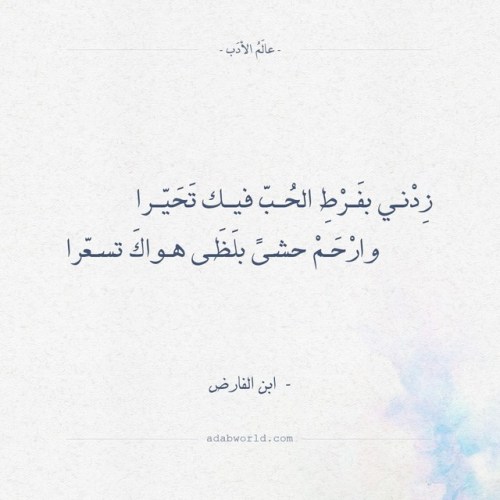 - عالَمُ الأدَب -
زِدْني بفَرْطِ الحُبّ فيك تَحَيّرا
وارْحَمْ حشىً بلَظَى هواكَ تسعّرا
- ابن الفارض
adabworld.com